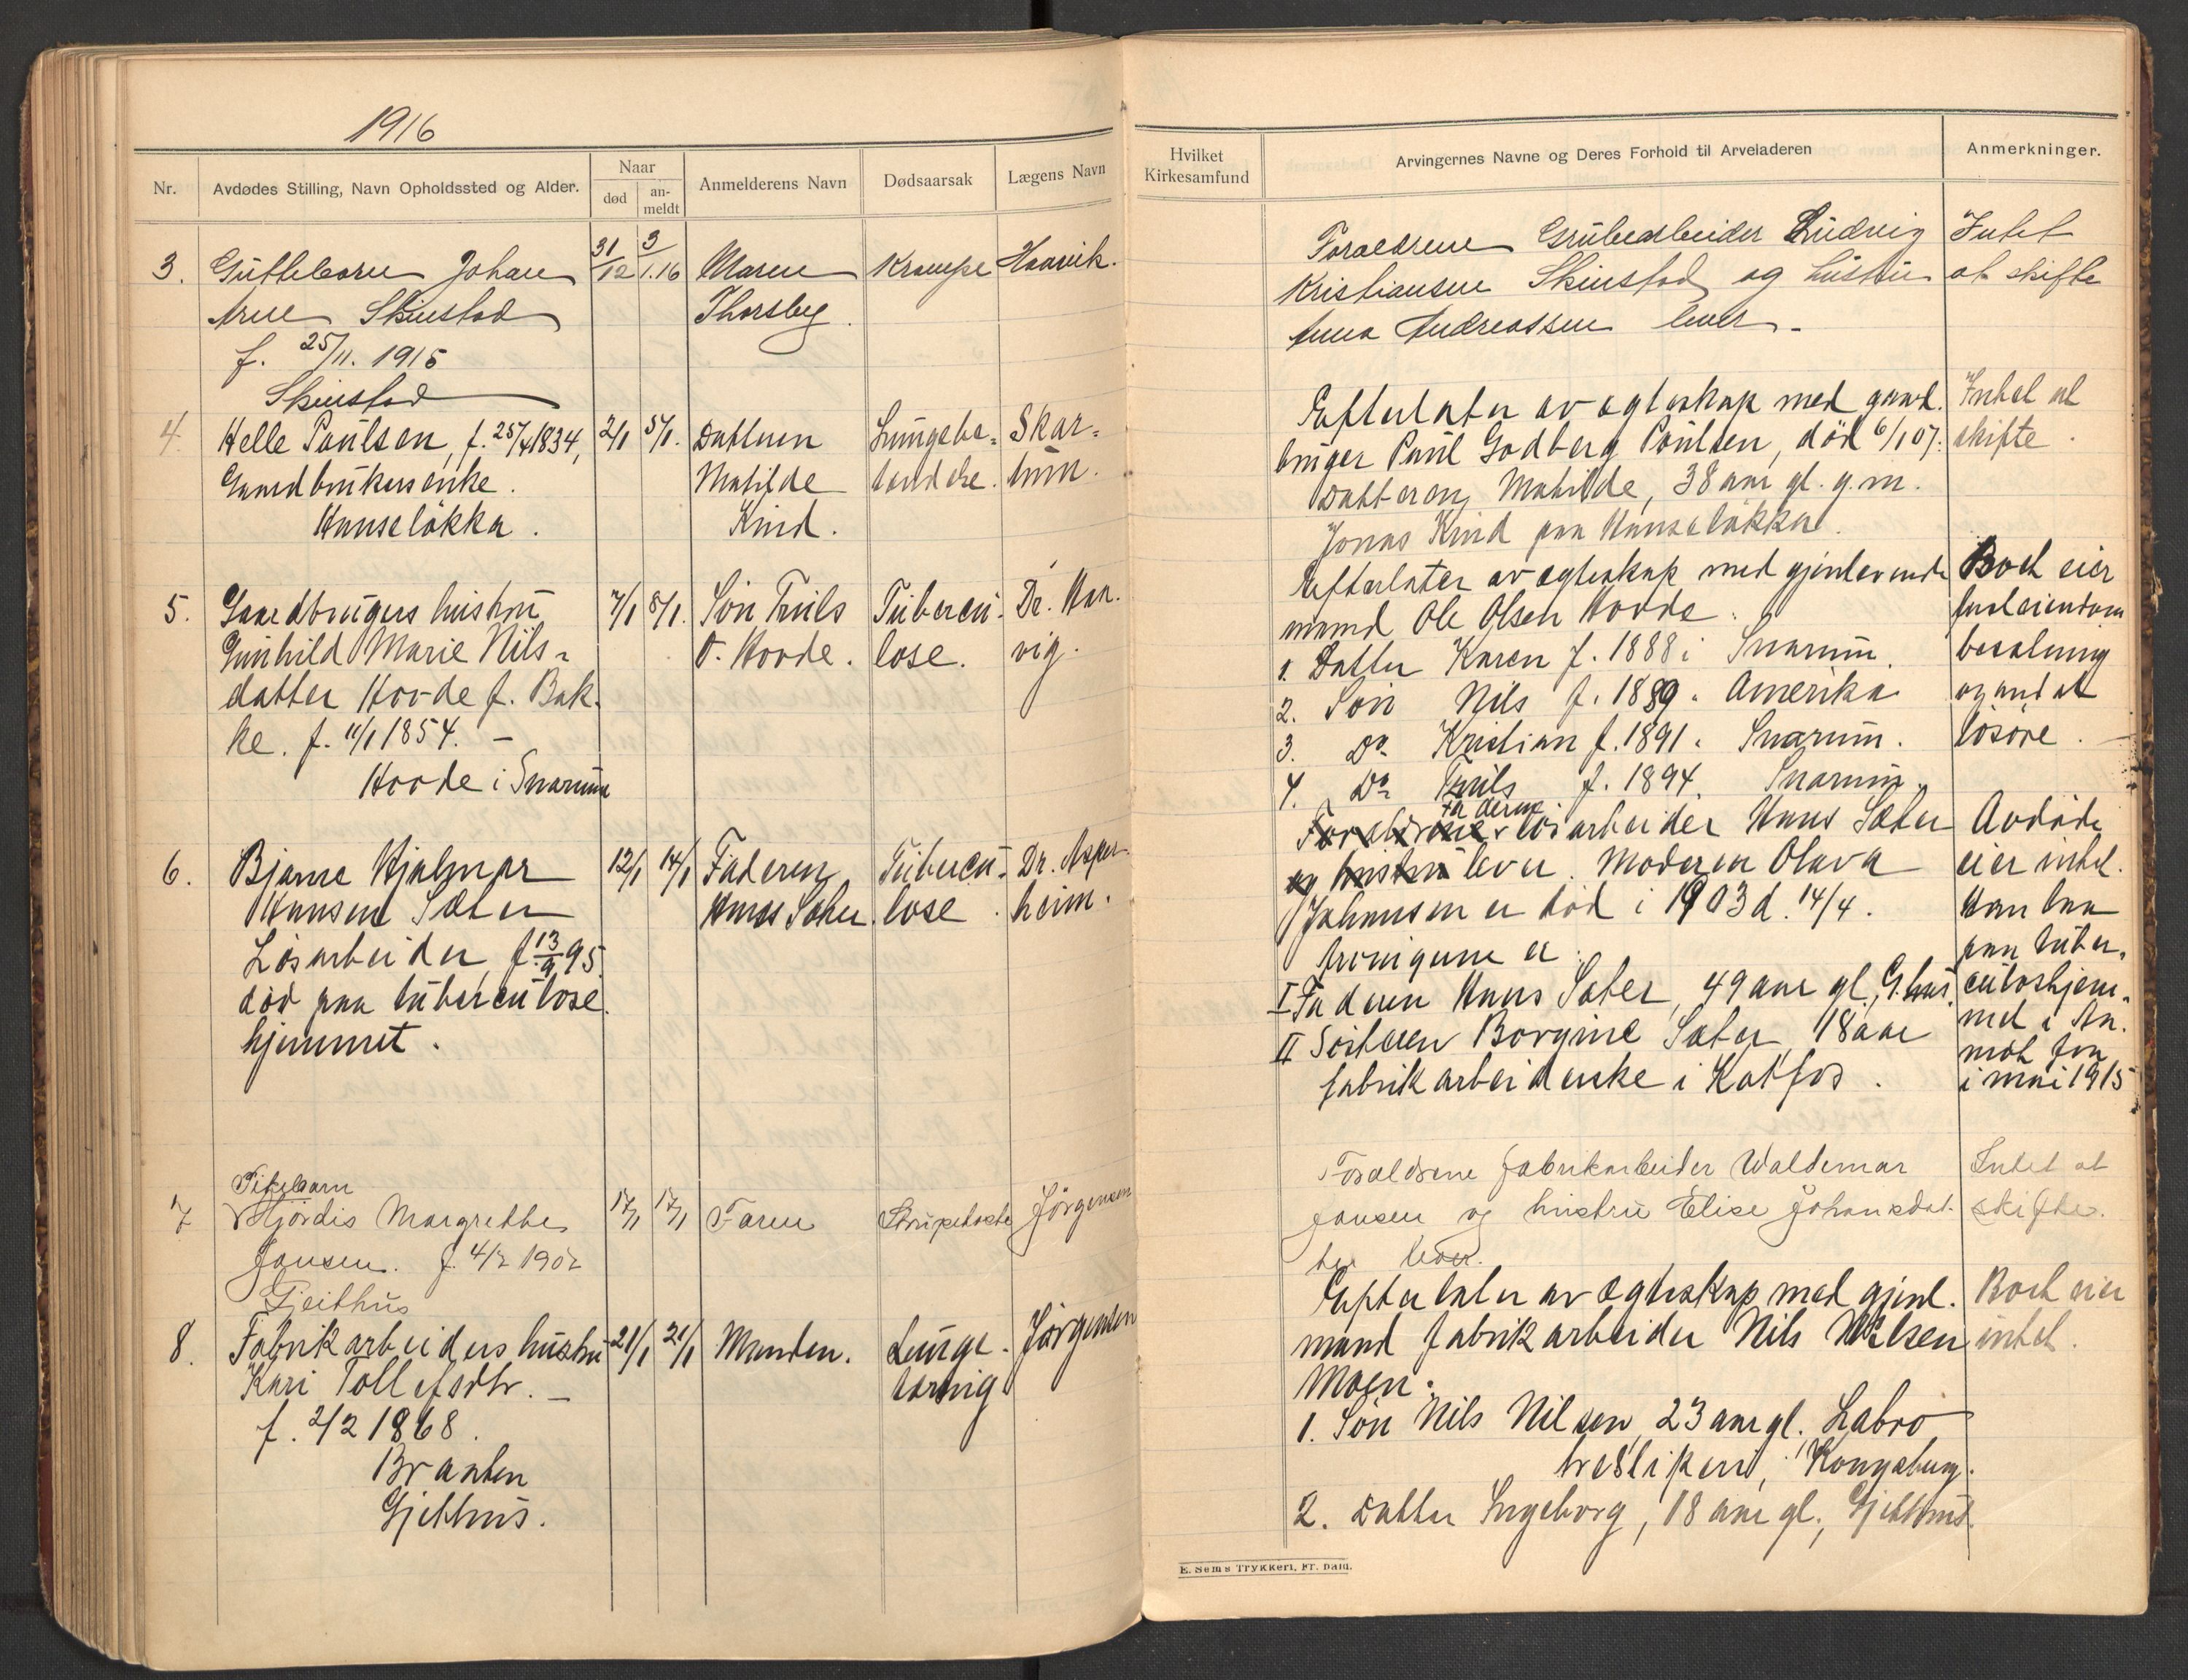 1916
Nr.
Avdødes Stilling, Navn Opholdssted og Alder.
Naar
død
an-
meldt
Anmelderens Navn
Dødsaarsak
Lægens Navn
3.
Guttebarn Johan
Arne Skinstad
f. 25/11. 1915
Skinstad
31/12
3/1.16
Maren
Thorsby
Krampe
Haavik.
4.
Helle Paulsen, f. 25/4 1834,
Gaardbrukerenke.
Hanseløkka.
2/1
5/1.
Datteren
Matilde
Kind.
Lungebe-
tændelse.
Skar-
tum.
5.
Gaardbrugers hustru
Gunhild Marie Nils-
datter Hovde f. Bak-
ke. f. 11/1 1854. –
Hovde i Snarum
7/1
8/1.
Søn Truls
O. Hovde.
Tubercu-
lose.
Dr. Haa-
vig.
6.
Bjarne Hjalmar
Hansen Sæter
Løsarbeider, f. 13/9 95.
død paa tuberculose
hjemmet.
12/1
14/1
Faderen
Hans Sæter.
Tubercu-
lose.
Dr. Asper-
heim.
7
Pikebarn
Hjørdis Margrethe
Jansen. f. 4/2 1902
Gjeithus
17/1
17/1
Faren
Strupehoste
Jörgensen
8.
Fabrikarbeiders hustru
Kari Tollefsdtr. –
f. 2/2 1868.
Braaten
Gjethus.
21/1
21/1
Manden.
Lunge-
tæring
Jørgensen
Hvilket
Kirkesamfund
Arvingernes Navne og Deres Forhold til Arveladeren
Anmerkninger.
Foraeldrene Grubearbeider Ludvig
Kristiansen Skinstad og hustru
Anna Andreassen lever –
Intet
at skifte
Efterlater av ægteskap med gaard-
bruger Paul Godberg Poulsen, død 6/1 07.
Datteren Matilde, 38 aar gl. g.m.
Jonas Kind paa Hanseløkka.
Intet at
skifte.
Efterlater av ægteskap med gjenlevende
mand Ole Olsen Hovde.
1. Datter Karen f. 1888 i Snarum.
2. Søn Nils f. 1889. Amerika
3. Do Kristian f. 1891. Snarum.
4. Do Truls f. 1894. Snarum.
Boet eier
fasteiendom
besætning
og andet
løsøre.
Faderen
Forældrene løsarbeider Hans Sæter
og hustru lever. Moderen Olava
Johansen er død i 1903 d. 14/4.
Arvingerne er:
I Faderen Hans Sæter, 49 aar gl., G.hus.
II Søsteren Borgine Sæter, 18 aar
fabrikarbeiderske i Katfos.
Avdøde
eier intet.
Han laa
paa tuber-
culoshjem-
met i Aa-
mot fra
i mai 1915
Forældrene fabrikarbeider Waldemar
Jansen og hustru Elise Johansdat-
ter lever.
Intet at
skifte.
Efterlater av ægteskap med gjenl.
mand fabrikarbeider Nils Nilsen
Moen.
1. Søn Nils Nilsen, 23 aar gl. Labro
træsliperi, Kongsberg.
2. Datter Ingeborg, 18 aar gl., Gjethus.
Boet eier
intet.
E. Sem's Trykkeri, Fr.hald.